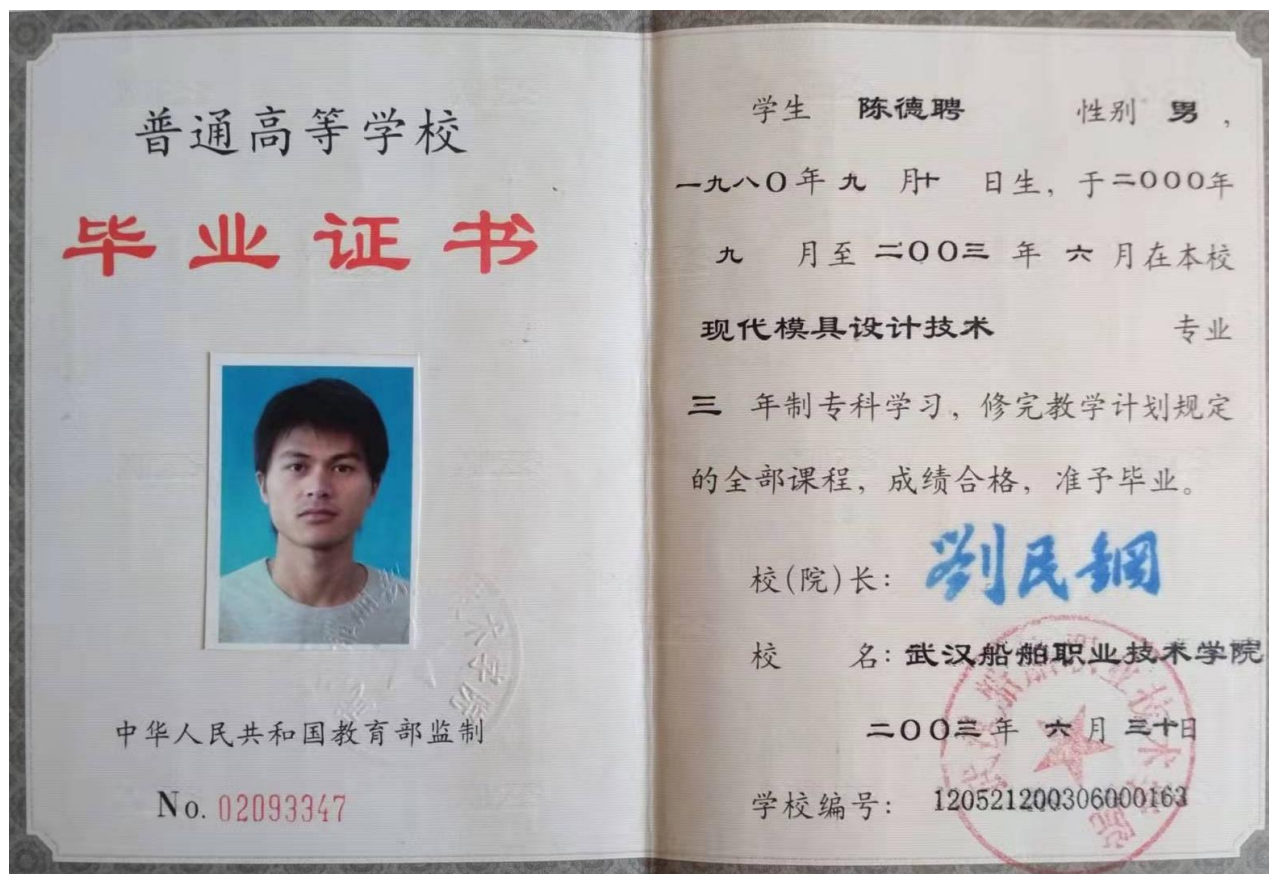 普通高等学校
毕业证书
中华人民共和国教育部监制
No. 02093347
学生 陈德聘 性别 男，
一九八〇年 九 月十 日生，于二〇〇〇年
九 月至 二〇〇三 年 六 月在本校
现代模具设计技术 专业
三 年制专科学习，修完教学计划规定
的全部课程，成绩合格，准予毕业。
校(院)长：劉民鋼
校 名：武汉船舶职业技术学院
二〇〇三年 六月 三十日
学校编号：120521200306000163
武汉船舶职业技术学院